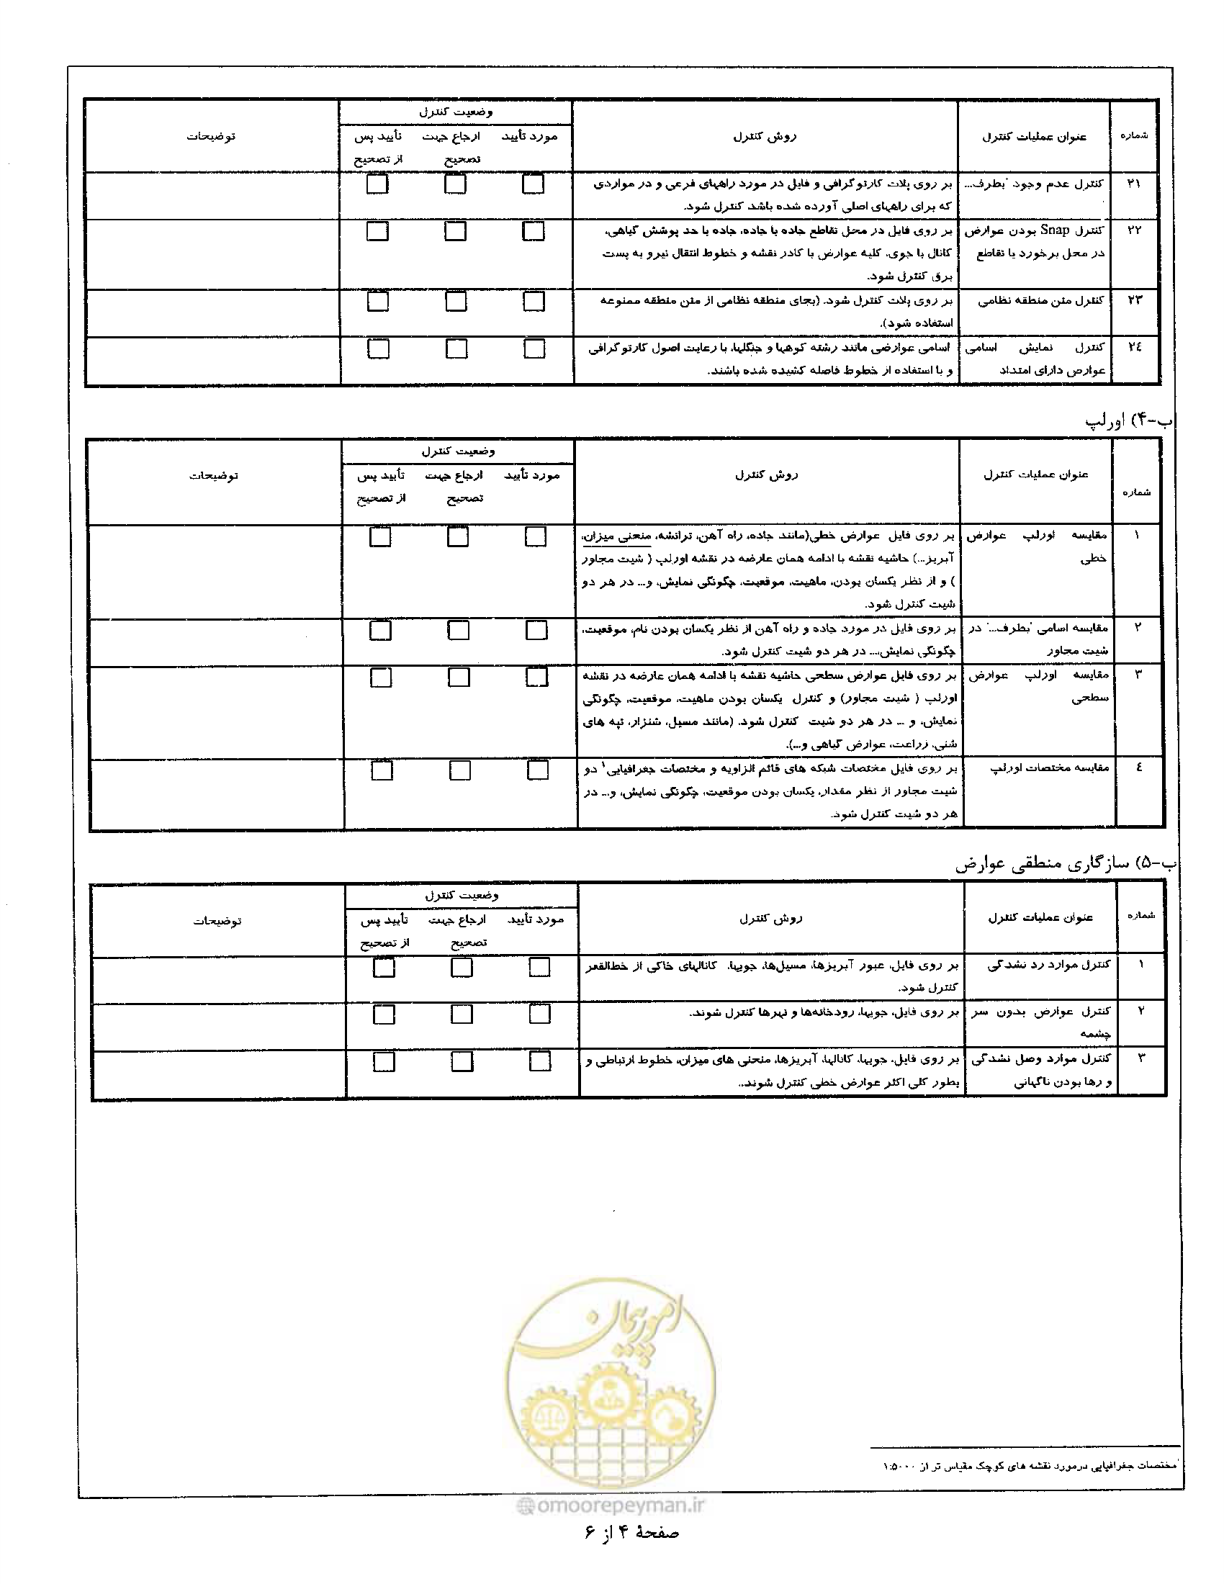 شماره
عنوان عملیات کنترل
روش کنترل
وضعیت کنترل
مورد تأیید
ارجاع جهت
تصحیح
تأیید پس
از تصحیح
توضیحات
۲۱
کنترل عدم وجود "بطرف...
بر روی پلات کارتوگرافی و فایل در مورد راههای فرعی و در مواردی
که برای راههای اصلی آورده شده باشد کنترل شود.
۲۲
کنترل Snap بودن عوارض
در محل برخورد یا تقاطع
بر روی فایل در محل تقاطع جاده با جاده، جاده با حد پوشش گیاهی،
کانال با جوی، کلیه عوارض با کادر نقشه و خطوط انتقال نیرو به پست
برق کنترل شود.
۲۳
کنترل متن منطقه نظامی
بر روی پلات کنترل شود. (بجای منطقه نظامی از متن منطقه ممنوعه
استفاده شود).
۲٤
کنترل نمایش اسامی
عوارض دارای امتداد
اسامی عوارضی مانند رشته کوهها و جنگلها، با رعایت اصول کارتوگرافی
و با استفاده از خطوط فاصله کشیده شده باشند.
ب-۴) اورلپ
شماره
عنوان عملیات کنترل
روش کنترل
وضعیت کنترل
مورد تأیید
ارجاع جهت
تصحیح
تأیید پس
از تصحیح
توضیحات
۱
مقایسه اورلپ عوارض
خطی
بر روی فایل عوارض خطی(مانند جاده، راه آهن، ترانشه، منحنی میزان،
آبریز...) حاشیه نقشه با ادامه همان عارضه در نقشه اورلپ ( شیت مجاور
) و از نظر یکسان بودن، ماهیت، موقعیت، چگونگی نمایش، و... در هر دو
شیت کنترل شود.
۲
مقایسه اسامی "بطرف..." در
شیت مجاور
بر روی فایل در مورد جاده و راه آهن از نظر یکسان بودن نام، موقعیت،
چگونگی نمایش،... در هر دو شیت کنترل شود.
۳
مقایسه اورلپ عوارض
سطحی
بر روی فایل عوارض سطحی حاشیه نقشه با ادامه همان عارضه در نقشه
اورلپ ( شیت مجاور) و کنترل یکسان بودن ماهیت، موقعیت، چگونگی
نمایش، و ... در هر دو شیت کنترل شود. (مانند مسیل، شنزار، تپه های
شنی، زراعت، عوارض گیاهی و...).
٤
مقایسه مختصات اورلپ
بر روی فایل مختصات شبکه های قائم الزاویه و مختصات جغرافیایی۱ دو
شیت مجاور از نظر مقدار، یکسان بودن موقعیت، چگونگی نمایش، و... در
هر دو شیت کنترل شود.
ب-۵) سازگاری منطقی عوارض
شماره
عنوان عملیات کنترل
روش کنترل
وضعیت کنترل
مورد تأیید
ارجاع جهت
تصحیح
تأیید پس
از تصحیح
توضیحات
۱
کنترل موارد رد نشدگی
بر روی فایل، عبور آبریزها، مسیل‌ها، جویها، کانالهای خاکی از خط‌القعر
کنترل شود.
۲
کنترل عوارض بدون سر
چشمه
بر روی فایل، جویها، رودخانه‌ها و نهرها کنترل شوند.
۳
کنترل موارد وصل نشدگی
و رها بودن ناگهانی
بر روی فایل، جویها، کانالها، آبریزها، منحنی های میزان، خطوط ارتباطی و
بطور کلی اکثر عوارض خطی کنترل شوند..
امور پیمان
۱مختصات جغرافیایی درمورد نقشه های کوچک مقیاس تر از ۱:۵۰۰۰
@omoorepeyman.ir
صفحهٔ ۴ از ۶